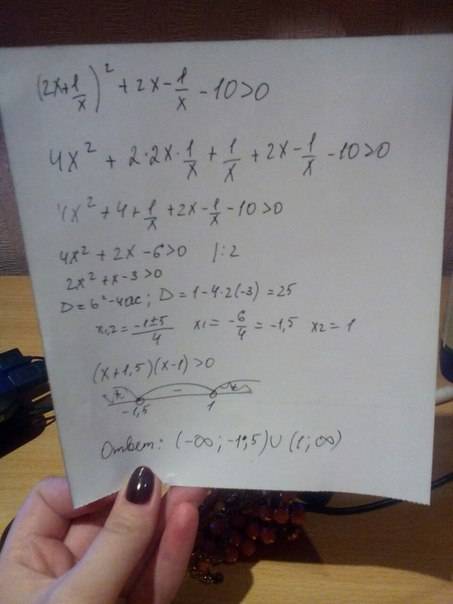 (2x+1/x)² + 2x - 1/x - 10>0
4x² + 2·2x·1/x + 1/x + 2x - 1/x - 10>0
4x² + 4 + 1/x + 2x - 1/x - 10>0
4x² + 2x - 6>0 |:2
2x² + x - 3>0
D = b² - 4ac; D = 1 - 4·2(-3) = 25
x1,2 = -1±5/4 x1 = -6/4 = -1,5 x2 = 1
(x+1,5)(x-1)>0
+ - +
-1,5 1
Ответ: (-∞; -1,5)∪(1; ∞)